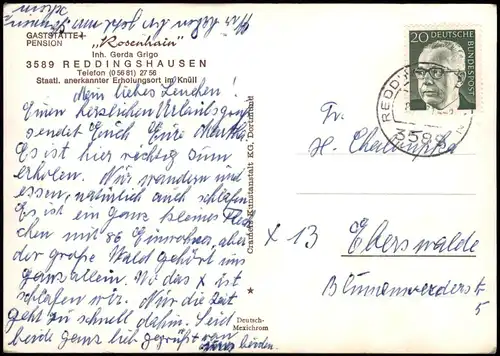 GASTSTÄTTE +
PENSION
„Rosenhain"
Inh. Gerda Grigo
3589 REDDINGSHAUSEN
Telefon (0 56 81) 27 56
Staatl. anerkannter Erholungsort im Knüll
Mein liebes Lenchen!
Einen herzlichen Urlaubsgruß
sendet Euch Eure
Es ist hier richtig zum
erholen. Wir wandern und
essen, natürlich auch schlafen.
Es ist ein ganz kleines Fleck-
chen mit 86 Einwohner, aber
der große Wald gehört uns
ganz allein. Wo das x ist
schlafen wir. Nur die Zeit
geht zu schnell dahin. Seid
beide ganz lieb gegrüßt von
uns beiden.
Graphische Kunstanstalt KG, Dortmund
Deutsch-
Mexichrom
20 DEUTSCHE
BUNDESPOST
REDD
3589
Fr.
H.
x 13 Eberswalde
5